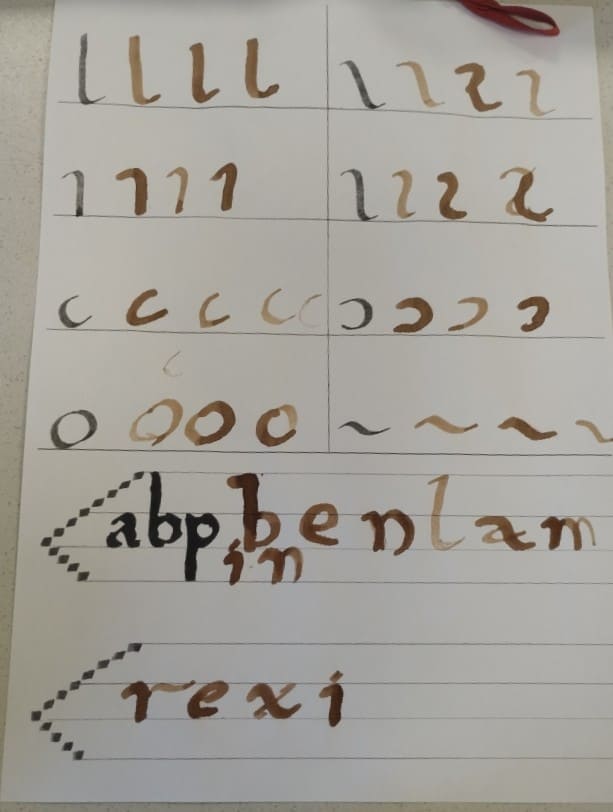 abp b e n l a m
in
r e x i